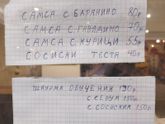 САМСА С БАРАНИНО 80р
САМСА С ГАВЯДИНО 70р
САМСА С КУРИЦИ 55р
СОСИСКИ ТЕСТА 40р
ШАУРМА ОБЫЧНИЯ 130р
с СЫРОМ 150р
с СОСИСКИ 150р